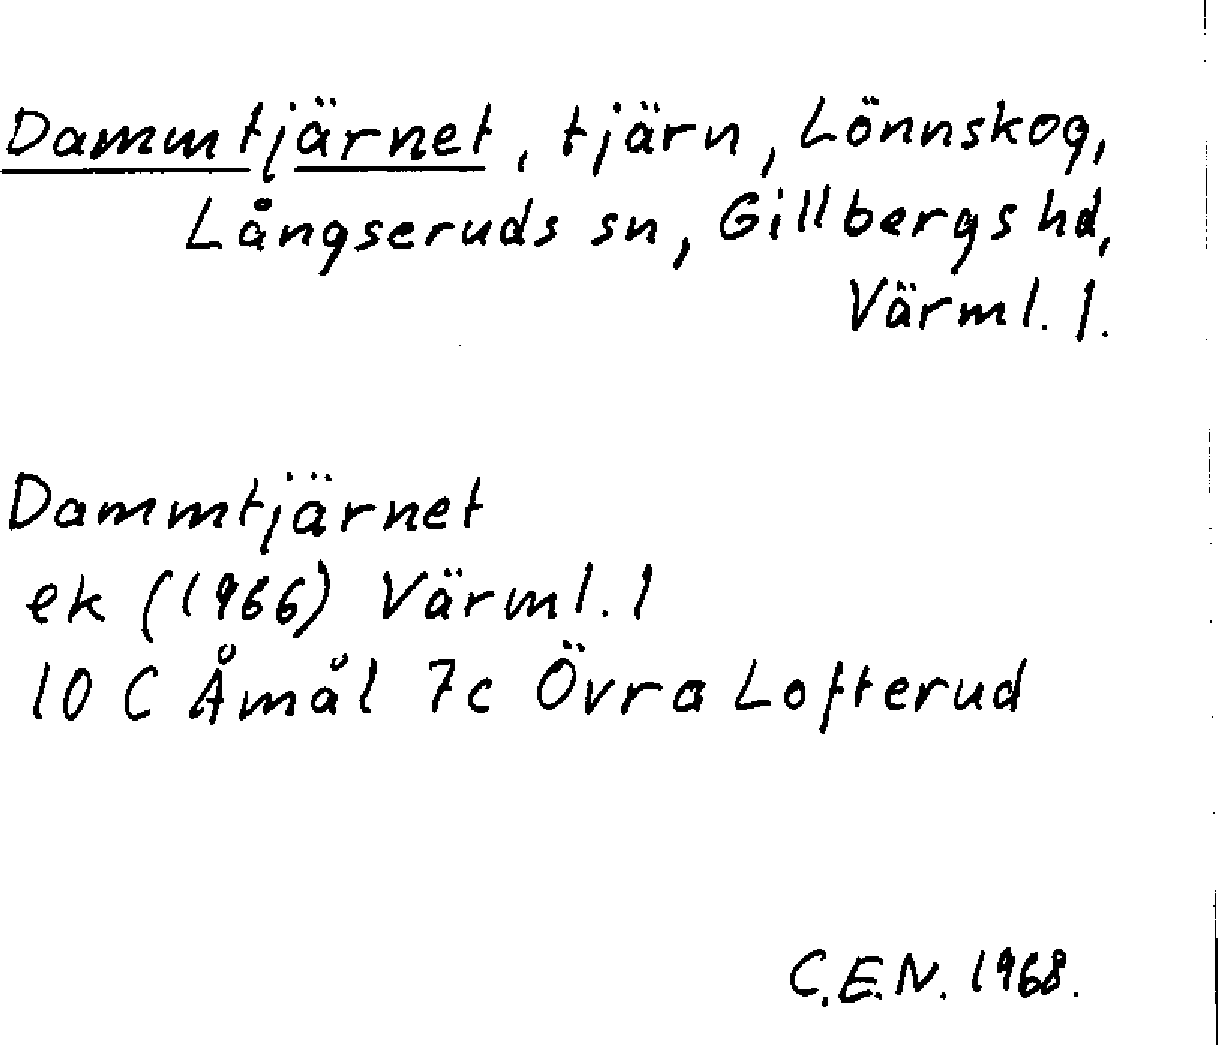 Dammtjärnet, tjärn, Lönnskog,
Långseruds sn, Gillbergs hd,
Värml. l.
Dammtjärnet
ek (1966) Värml. l
10 C Åmål 7c Övra Lofterud
C.E.N. 1968.